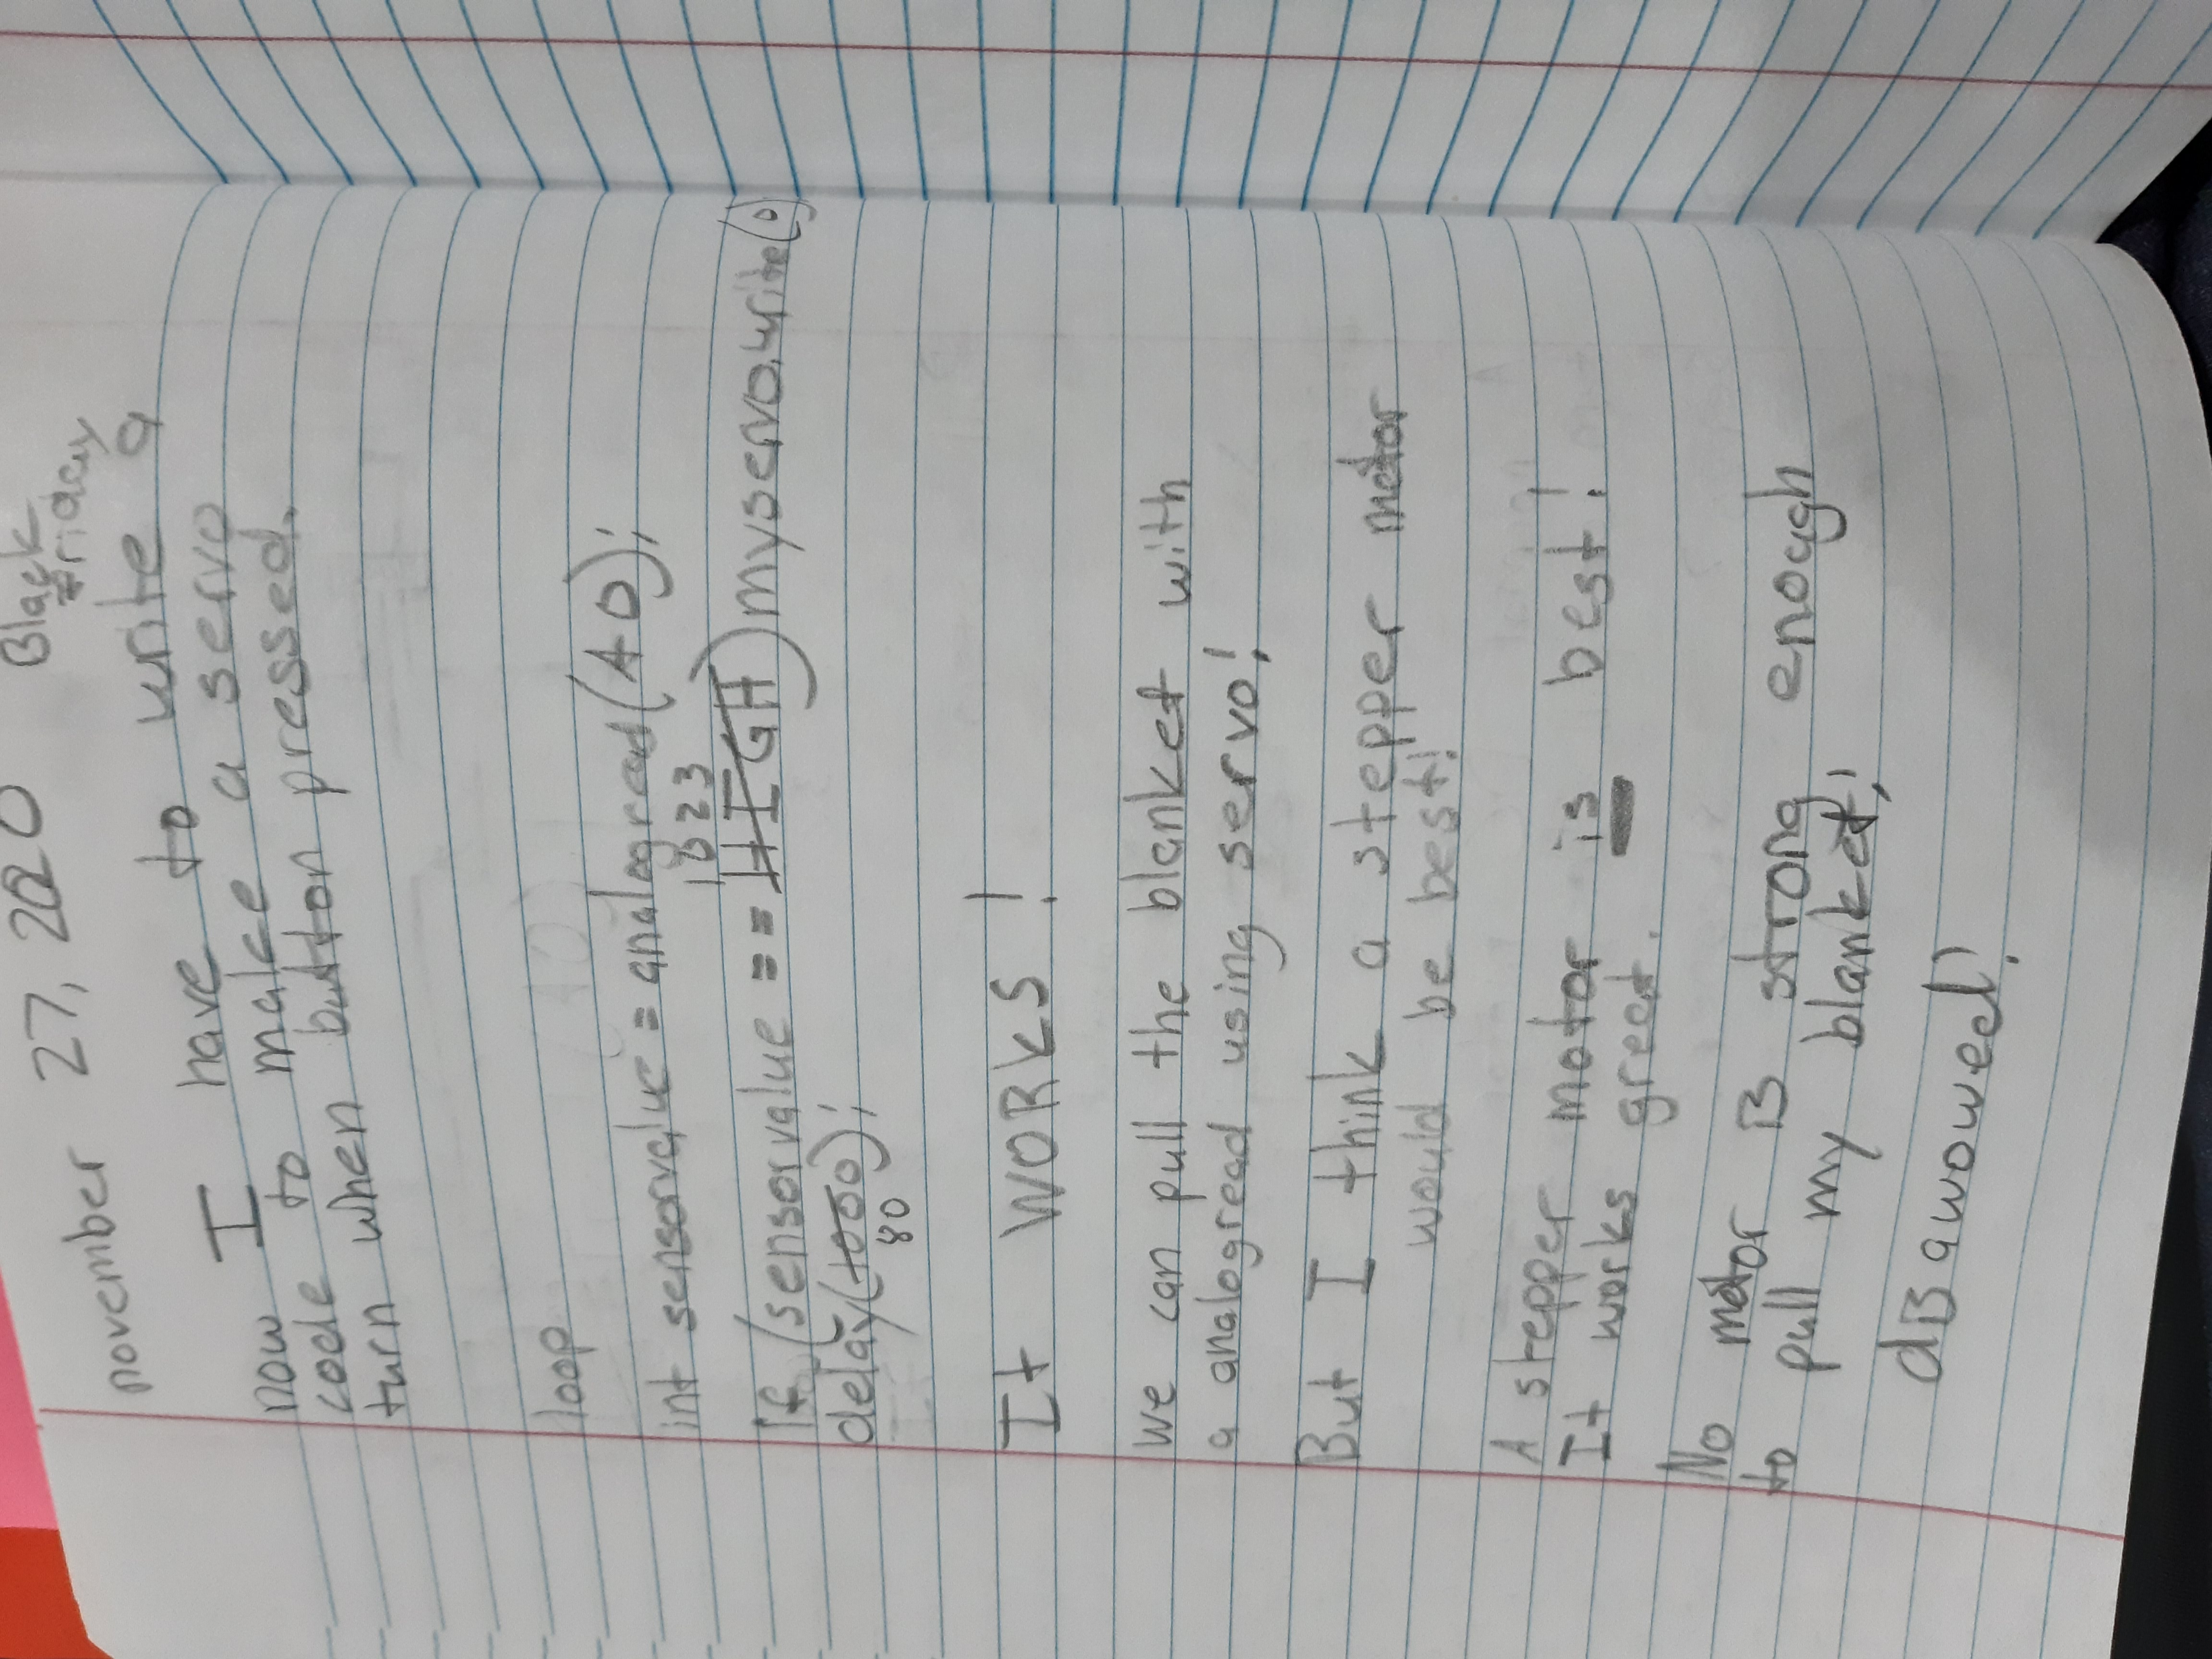 november 27, 2020 Black
Friday
I have to write a
now to make a servo
code
turn when button pressed.
loop
int sensorvalue = analogread(A0);
1023
If (sensorvalue == HIGH) myservo.write(0)
delay(1000);
80
It WORKS!
we can pull the blanket with
a analogread using servo!
But I think a stepper motor
would be best!
A stepper motor is best!
It works great.
No motor is strong enough
to pull my blanket!
disavowed!